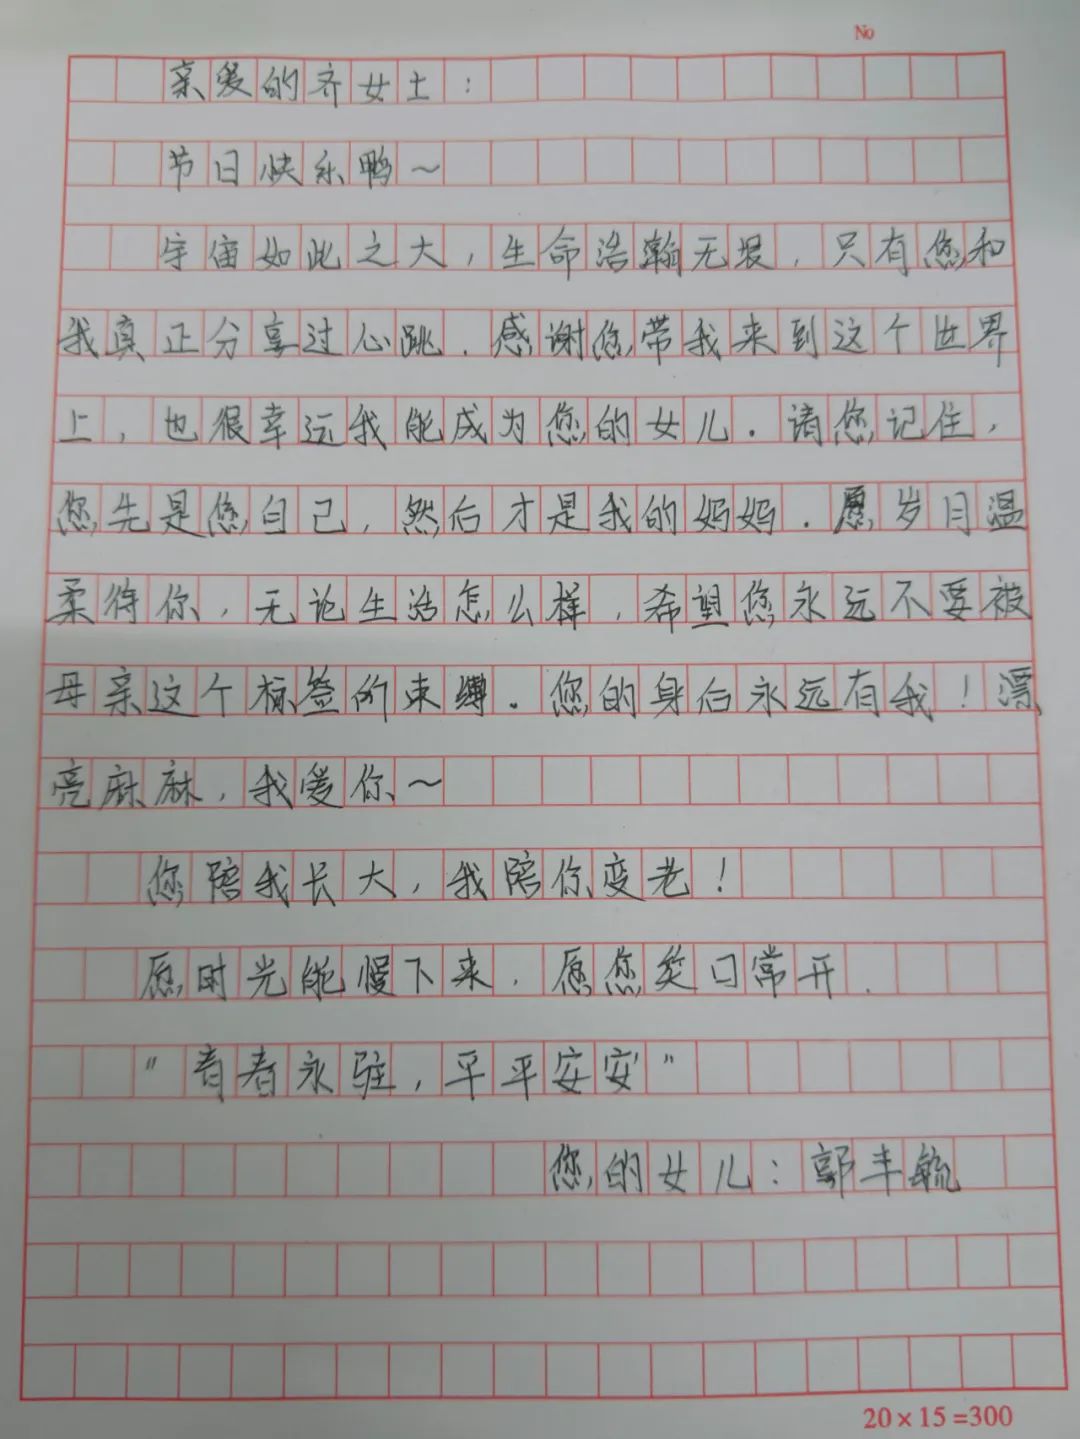 No
亲爱的齐女士：
节日快乐鸭～
宇宙如此之大，生命浩瀚无垠，只有您和
我真正分享过心跳．感谢您带我来到这个世界
上，也很幸运我能成为您的女儿．请您记住，
您先是您自己，然后才是我的妈妈．愿岁月温
柔待你，无论生活怎么样，希望您永远不要被
母亲这个标签所束缚．您的身后永远有我！漂
亮麻麻，我爱你～
您陪我长大，我陪你变老！
愿时光能慢下来，愿您笑口常开．
"青春永驻，平平安安"
您的女儿：郭丰毓
20×15=300